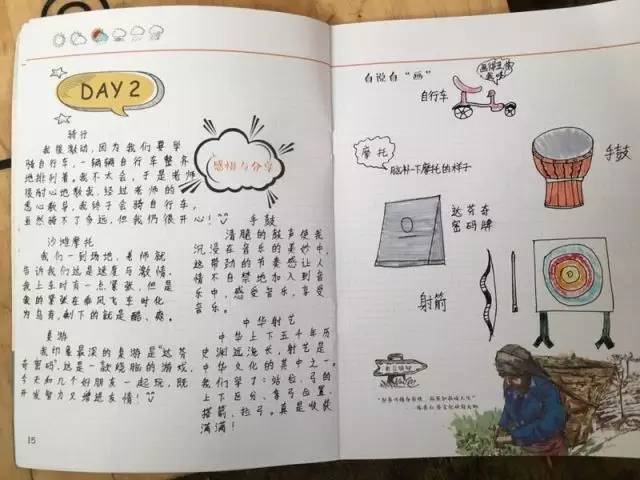 DAY 2
骑行
我很激动，因为我们要学
骑自行车，一辆辆自行车整齐
地排列着。我不太会，于是老师
很耐心地教我，经过老师的
悉心教导，我终于会骑自行车，
虽然骑不了多远，但我仍很开心！
沙滩摩托
我们一到场地，老师就
告诉我们这是速度与激情，
我上车时有一点紧张，但是
我的紧张在乘风飞车时化
为乌有，剩下的就是酷、爽。
桌游
我印象最深的桌游是“达芬
奇密码”，这是一款烧脑的游戏，
今天和几个好朋友一起玩，既
开发智力又增进友情！
15
感悟与分享
手鼓
清脆的鼓声使我
沉浸在音乐的美妙中，
这带动的节奏感让人
情不自禁地加入到音
乐中，感受音乐，享受
音乐。
中华射艺
中华上下五千年历
史渊远流长，射艺是
中华文化的其中之一。
我们学了：站位、弓的
上下区分、拿弓位置、
搭箭、拉弓。真是收获
满满！
自说自“画”
自行车
手鼓
摩托
脑补一下摩托的样子
达芬奇
密码牌
射箭